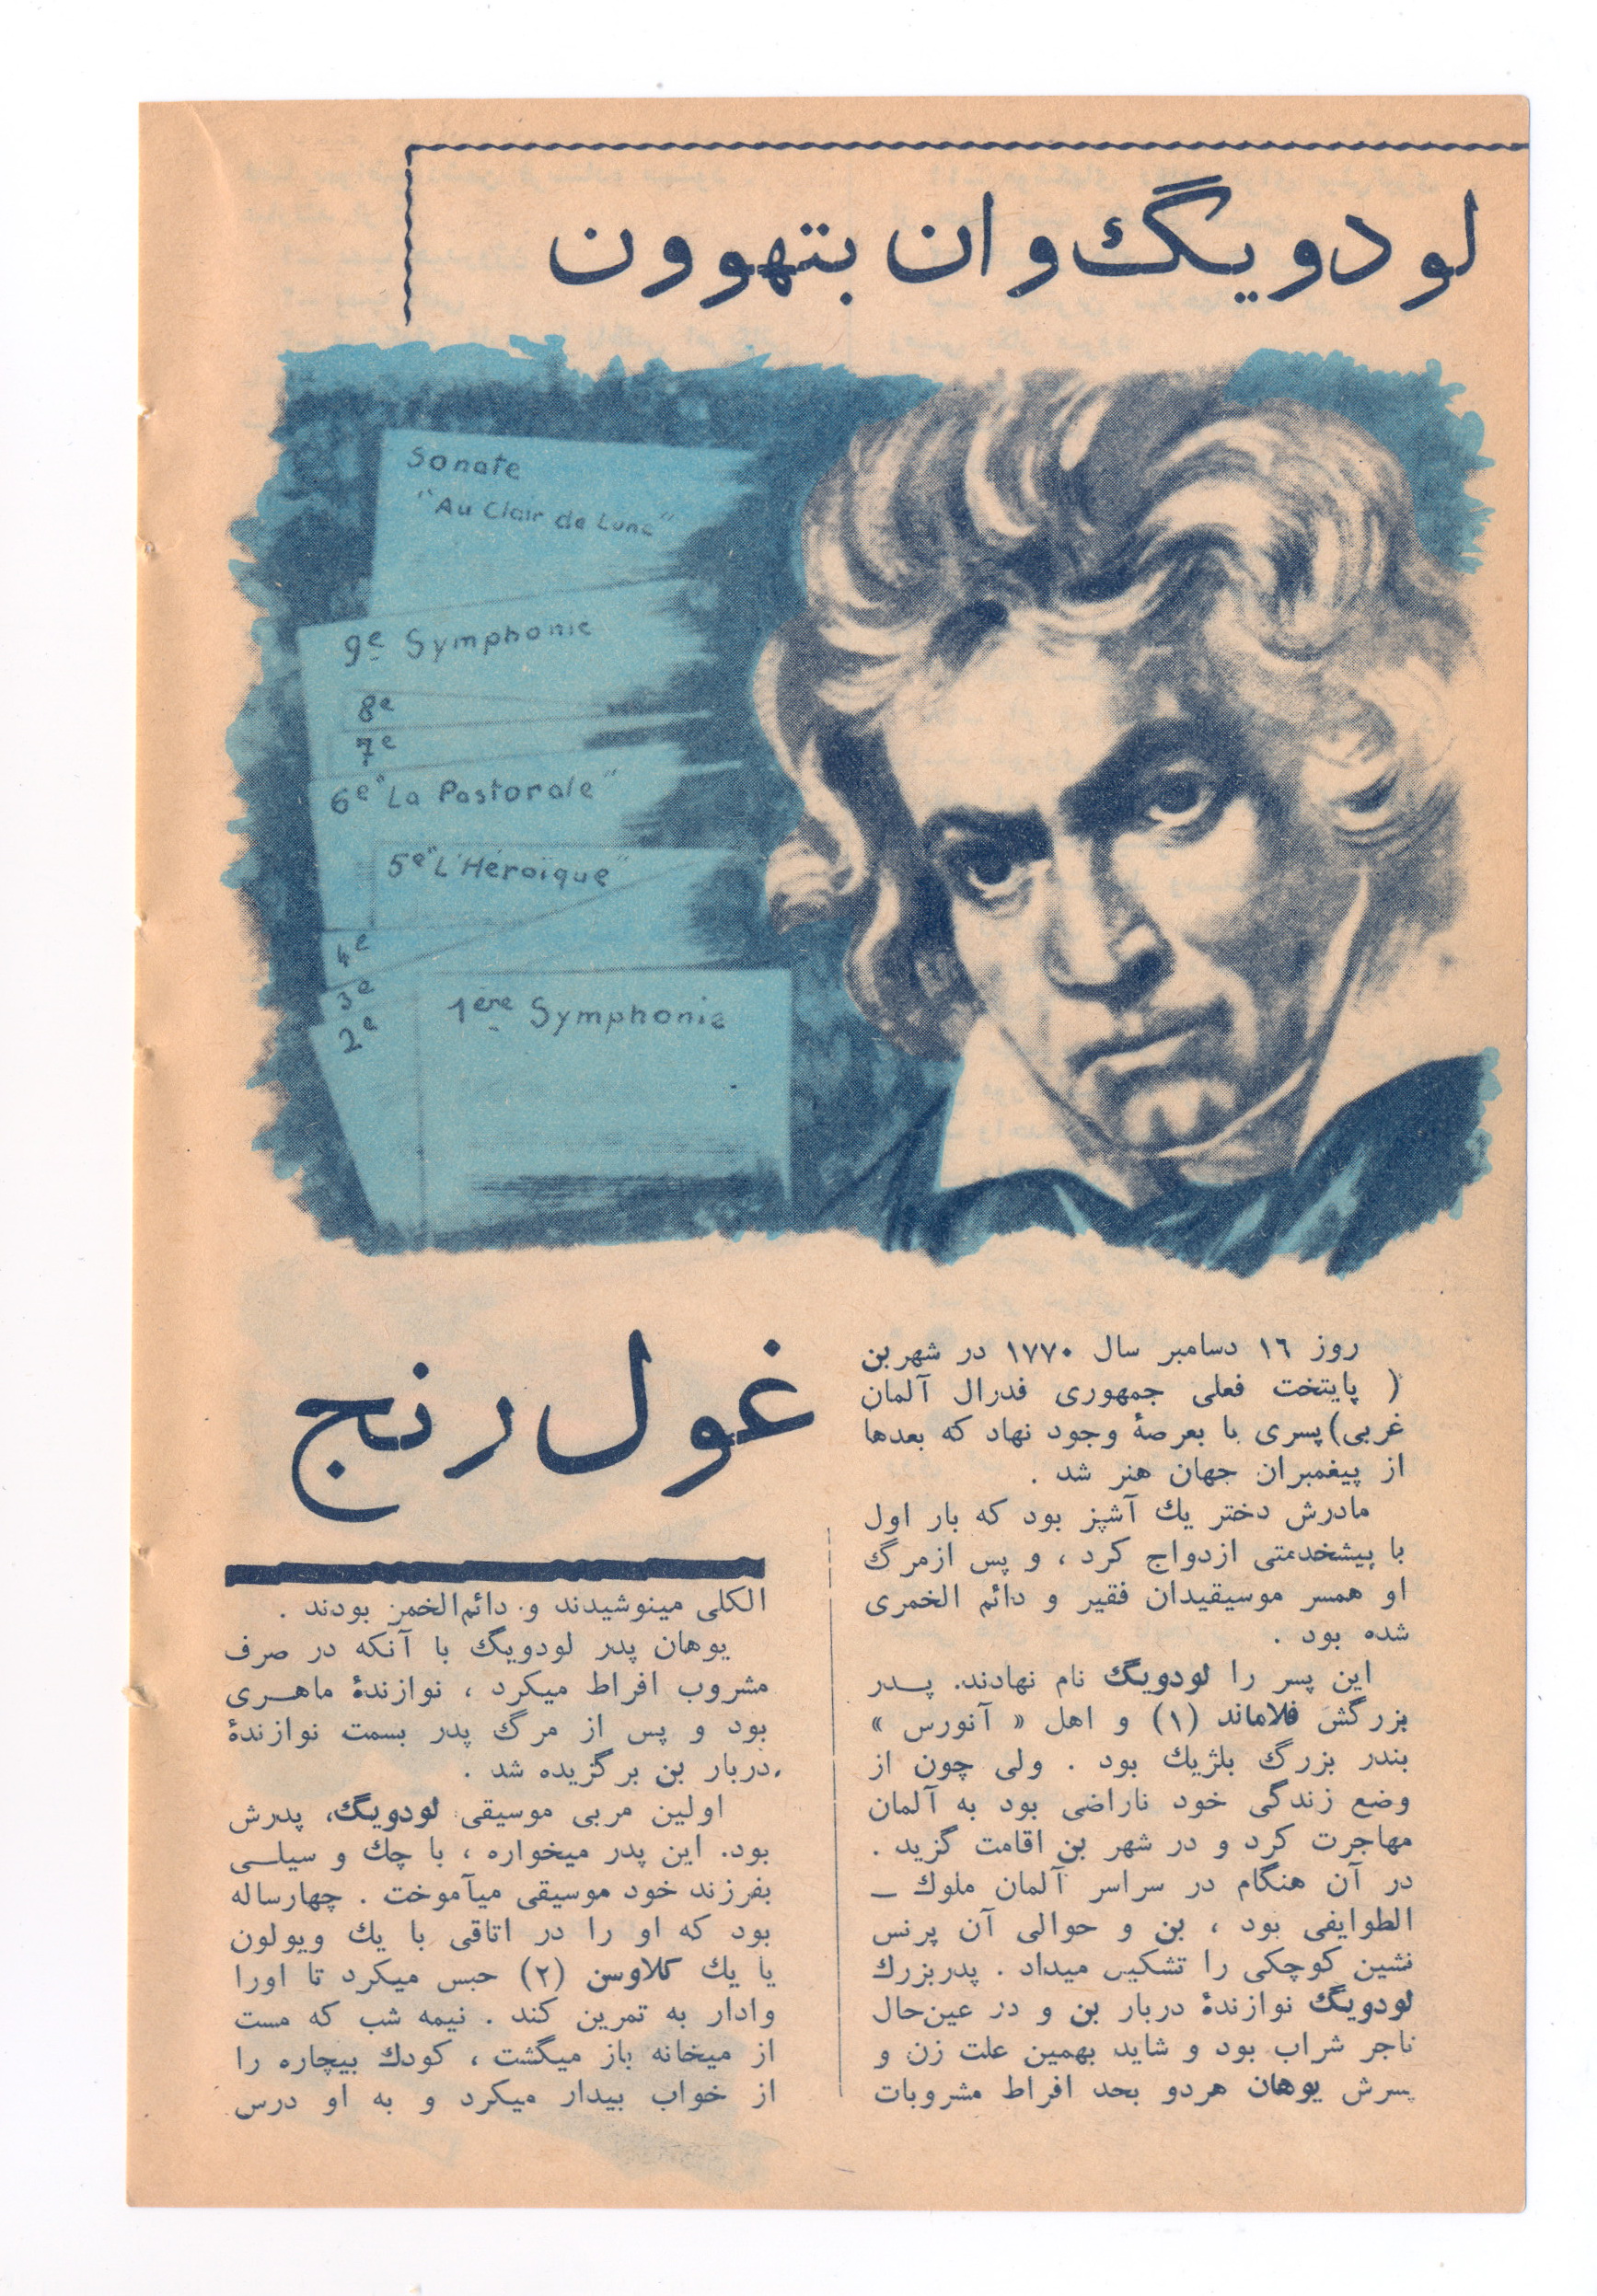 لودویگ وان بتهوون
Sonate
"Au Clair de Lune"
9e Symphonie
8e
7e
6e "La Pastorale"
5e "L'Héroïque"
4e
3e
2e
1ère Symphonie
غول رنج
روز ۱٦ دسامبر سال ۱۷۷۰ در شهر بن
( پایتخت فعلی جمهوری فدرال آلمان
غربی) پسری پا بعرصهٔ وجود نهاد که بعدها
از پیغمبران جهان هنر شد .
مادرش دختر یك آشپز بود که بار اول
با پیشخدمتی ازدواج کرد ، و پس از مرگ
او همسر موسیقیدان فقیر و دائم الخمری
شده بود .
این پسر را لودویگ نام نهادند. پــدر
بزرگش فلاماند (۱) و اهل « آنورس »
بندر بزرگ بلژیك بود . ولی چون از
وضع زندگی خود ناراضی بود به آلمان
مهاجرت کرد و در شهر بن اقامت گزید .
در آن هنگام در سراسر آلمان ملوك ـ
الطوایفی بود ، بن و حوالی آن پرنس
نشین کوچکی را تشکیل میداد . پدربزرك
لودویگ نوازندهٔ دربار بن و در عین‌حال
تاجر شراب بود و شاید بهمین علت زن و
پسرش یوهان هردو بحد افراط مشروبات
الکلی مینوشیدند و دائم‌الخمر بودند .
یوهان پدر لودویگ با آنکه در صرف
مشروب افراط میکرد ، نوازندهٔ ماهــری
بود و پس از مرگ پدر بسمت نوازندهٔ
دربار بن برگزیده شد .
اولین مربی موسیقی لودویگ، پدرش
بود. این پدر میخواره ، با چك و سیلــی
بفرزند خود موسیقی میآموخت . چهارساله
بود که او را در اتاقی با یك ویولون
یا یك کلاوسن (۲) حبس میکرد تا اورا
وادار به تمرین کند . نیمه شب که مست
از میخانه باز میگشت ، کودك بیچاره را
از خواب بیدار میکرد و به او درس